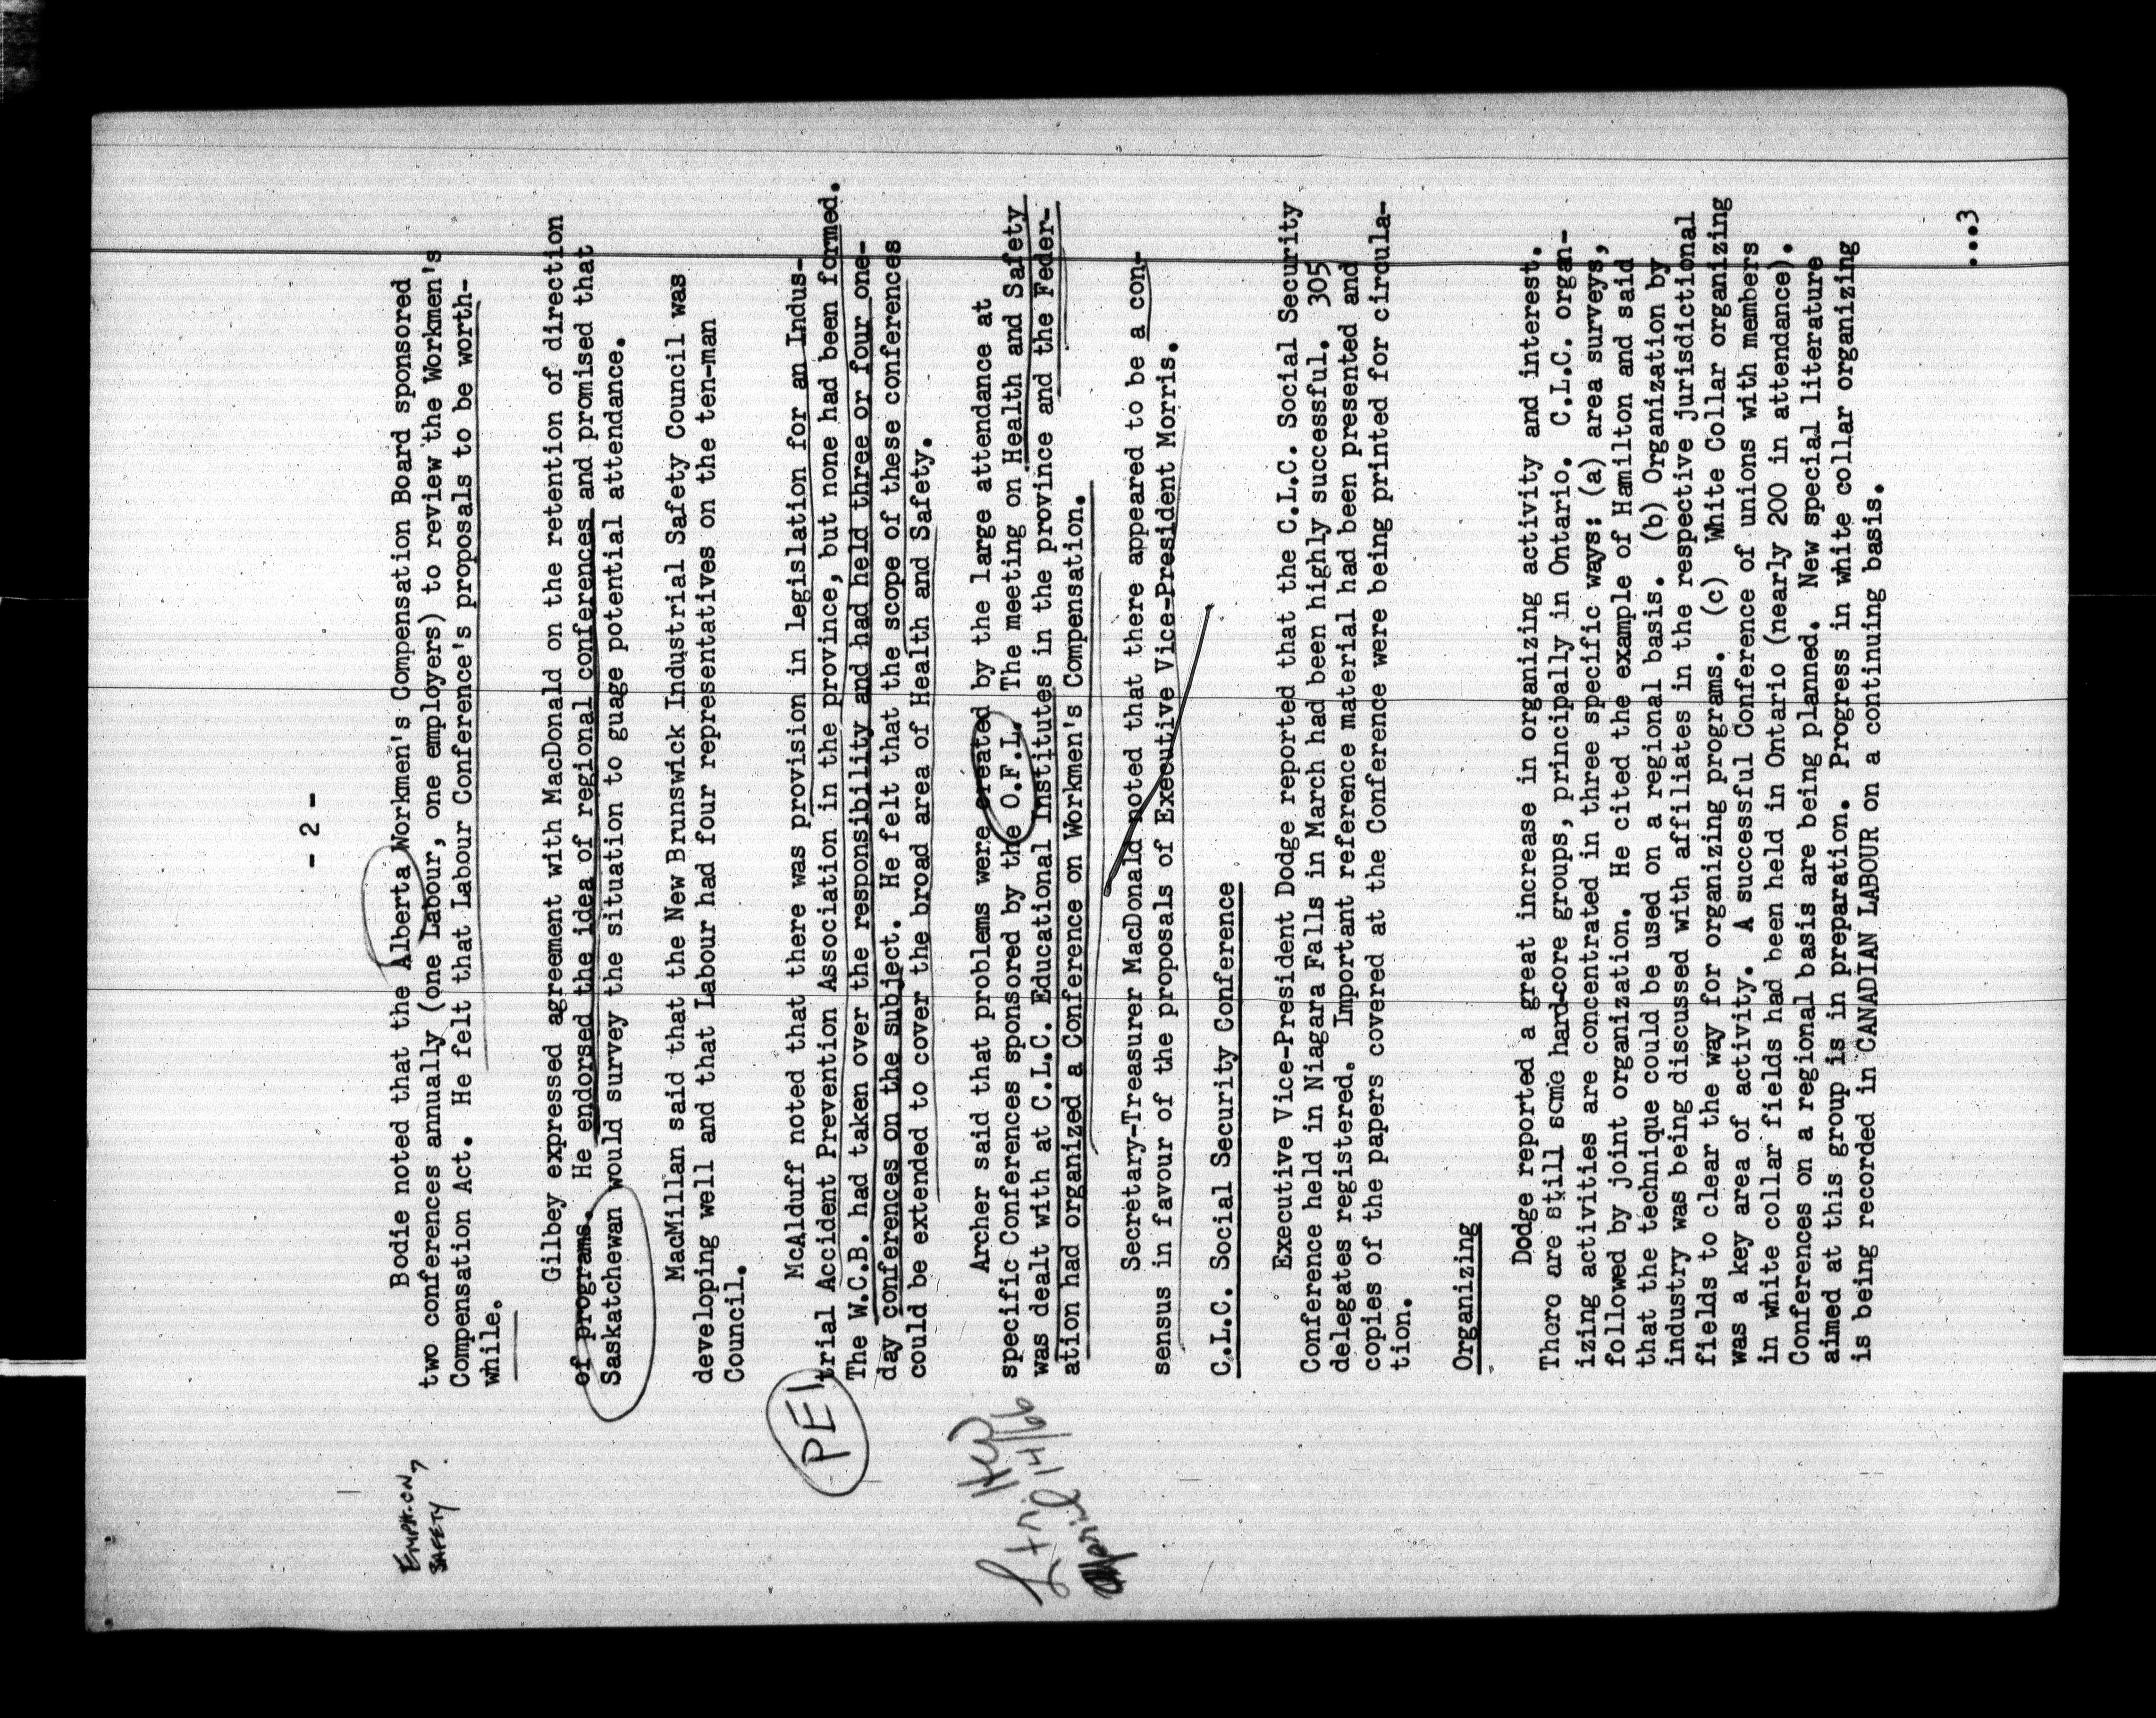 - 2 -
Bodie noted that the Alberta Workmen's Compensation Board sponsored
two conferences annually (one Labour, one employers) to review the Workmen's
Compensation Act. He felt that Labour Conference's proposals to be worth-
while.
EMPH. ON
SAFETY
Gilbey expressed agreement with MacDonald on the retention of direction
of programs. He endorsed the idea of regional conferences and promised that
Saskatchewan would survey the situation to guage potential attendance.
MacMillan said that the New Brunswick Industrial Safety Council was
developing well and that Labour had four representatives on the ten-man
Council.
PEI
McAlduff noted that there was provision in legislation for an Indus-
trial Accident Prevention Association in the province, but none had been formed.
The W.C.B. had taken over the responsibility and had held three or four one-
day conferences on the subject. He felt that the scope of these conferences
could be extended to cover the broad area of Health and Safety.
Archer said that problems were created by the large attendance at
specific Conferences sponsored by the O.F.L. The meeting on Health and Safety
was dealt with at C.L.C. Educational Institutes in the province and the Feder-
ation had organized a Conference on Workmen's Compensation.
14/66
Secretary-Treasurer MacDonald noted that there appeared to be a con-
sensus in favour of the proposals of Executive Vice-President Morris.
C.L.C. Social Security Conference
Executive Vice-President Dodge reported that the C.L.C. Social Security
Conference held in Niagara Falls in March had been highly successful. 305
delegates registered. Important reference material had been presented and
copies of the papers covered at the Conference were being printed for circula-
tion.
Organizing
Dodge reported a great increase in organizing activity and interest.
There are still some hard-core groups, principally in Ontario. C.L.C. organ-
izing activities are concentrated in three specific ways: (a) area surveys,
followed by joint organization. He cited the example of Hamilton and said
that the technique could be used on a regional basis. (b) Organization by
industry was being discussed with affiliates in the respective jurisdictional
fields to clear the way for organizing programs. (c) White Collar organizing
was a key area of activity. A successful Conference of unions with members
in white collar fields had been held in Ontario (nearly 200 in attendance).
Conferences on a regional basis are being planned. New special literature
aimed at this group is in preparation. Progress in white collar organizing
is being recorded in CANADIAN LABOUR on a continuing basis.
...3